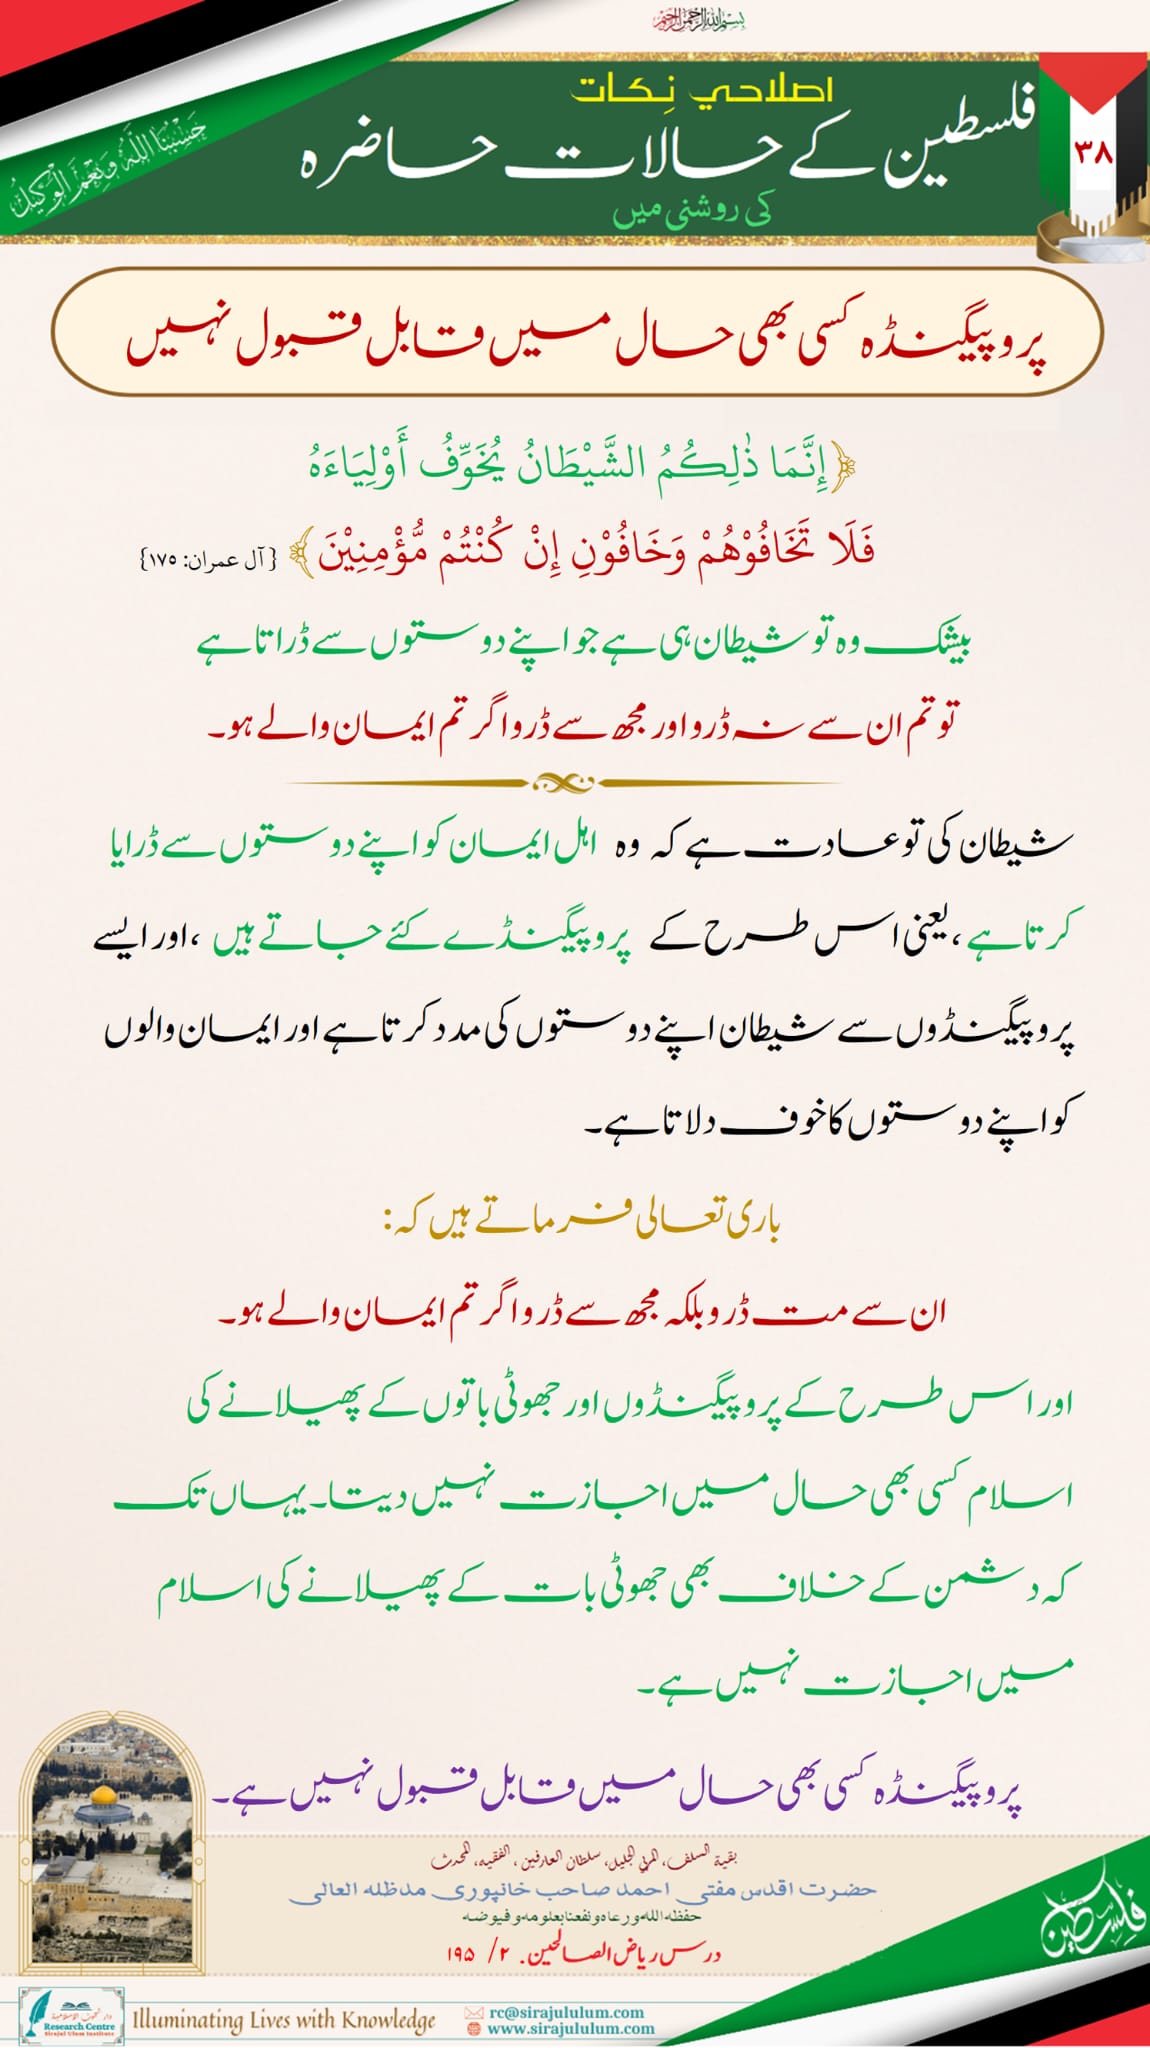 بسم الله الرحمن الرحيم
حَسْبُنَا اللَّهُ وَنِعْمَ الْوَكِيلُ
اصلاحي نِكات
فلسطین کے حالات حاضرہ
کی روشنی میں
۳۸
پروپیگنڈہ کسی بھی حال میں قابل قبول نہیں
﴿إِنَّمَا ذٰلِكُمُ الشَّيْطَانُ يُخَوِّفُ أَوْلِيَاءَهُ
فَلَا تَخَافُوْهُمْ وَخَافُوْنِ إِنْ كُنْتُمْ مُّؤْمِنِيْنَ﴾ {آل عمران: ١٧٥}
بیشک وہ تو شیطان ہی ہے جو اپنے دوستوں سے ڈراتا ہے
تو تم ان سے نہ ڈرو اور مجھ سے ڈرو اگر تم ایمان والے ہو۔
شیطان کی تو عادت ہے کہ وہ اہل ایمان کو اپنے دوستوں سے ڈرایا
کرتا ہے، یعنی اس طرح کے پروپیگنڈے کئے جاتے ہیں، اور ایسے
پروپیگنڈوں سے شیطان اپنے دوستوں کی مدد کرتا ہے اور ایمان والوں
کو اپنے دوستوں کا خوف دلاتا ہے۔
باری تعالی فرماتے ہیں کہ:
ان سے مت ڈرو بلکہ مجھ سے ڈرو اگر تم ایمان والے ہو۔
اور اس طرح کے پروپیگنڈوں اور جھوٹی باتوں کے پھیلانے کی
اسلام کسی بھی حال میں اجازت نہیں دیتا۔ یہاں تک
کہ دشمن کے خلاف بھی جھوٹی بات کے پھیلانے کی اسلام
میں اجازت نہیں ہے۔
پروپیگنڈہ کسی بھی حال میں قابل قبول نہیں ہے۔
بقية السلف، المربي الجليل، سلطان العارفین، الفقيه، المحدث
حضرت اقدس مفتی احمد صاحب خانپوری مدظلہ العالی
حفظه الله ورعاه ونفعنا بعلومه وفيوضه
درس ریاض الصالحین. ۲/ ۱۹۵
فلسطین
Research Centre
Sirajul Ulum Institute
Illuminating Lives with Knowledge
rc@sirajululum.com
www.sirajululum.com